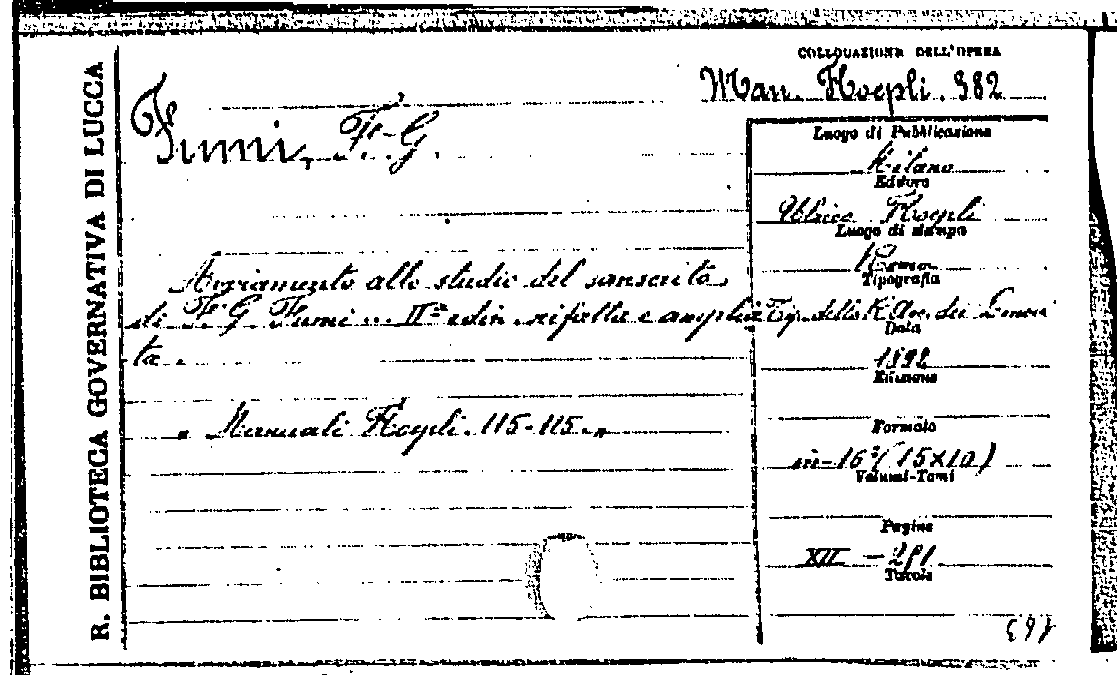 R. BIBLIOTECA GOVERNATIVA DI LUCCA
COLLOCAZIONE DELL'OPERA
Man. Hoepli. 382
Fumi, F. G.
Avviamento allo studio del sanscrito
di F. G. Fumi ... IIª edin. rifatta e amplia
ta.
" Manuali Hoepli. 115-115. "
Luogo di Pubblicazione
Milano
Editore
Ulrico Hoepli
Luogo di stampa
Roma
Tipografia
Tip. della R. Acc. dei Lincei
Data
1892
Edizione
Formato
in-16º (15x10)
Volumi-Tomi
Pagine
XII - 251
Tavole